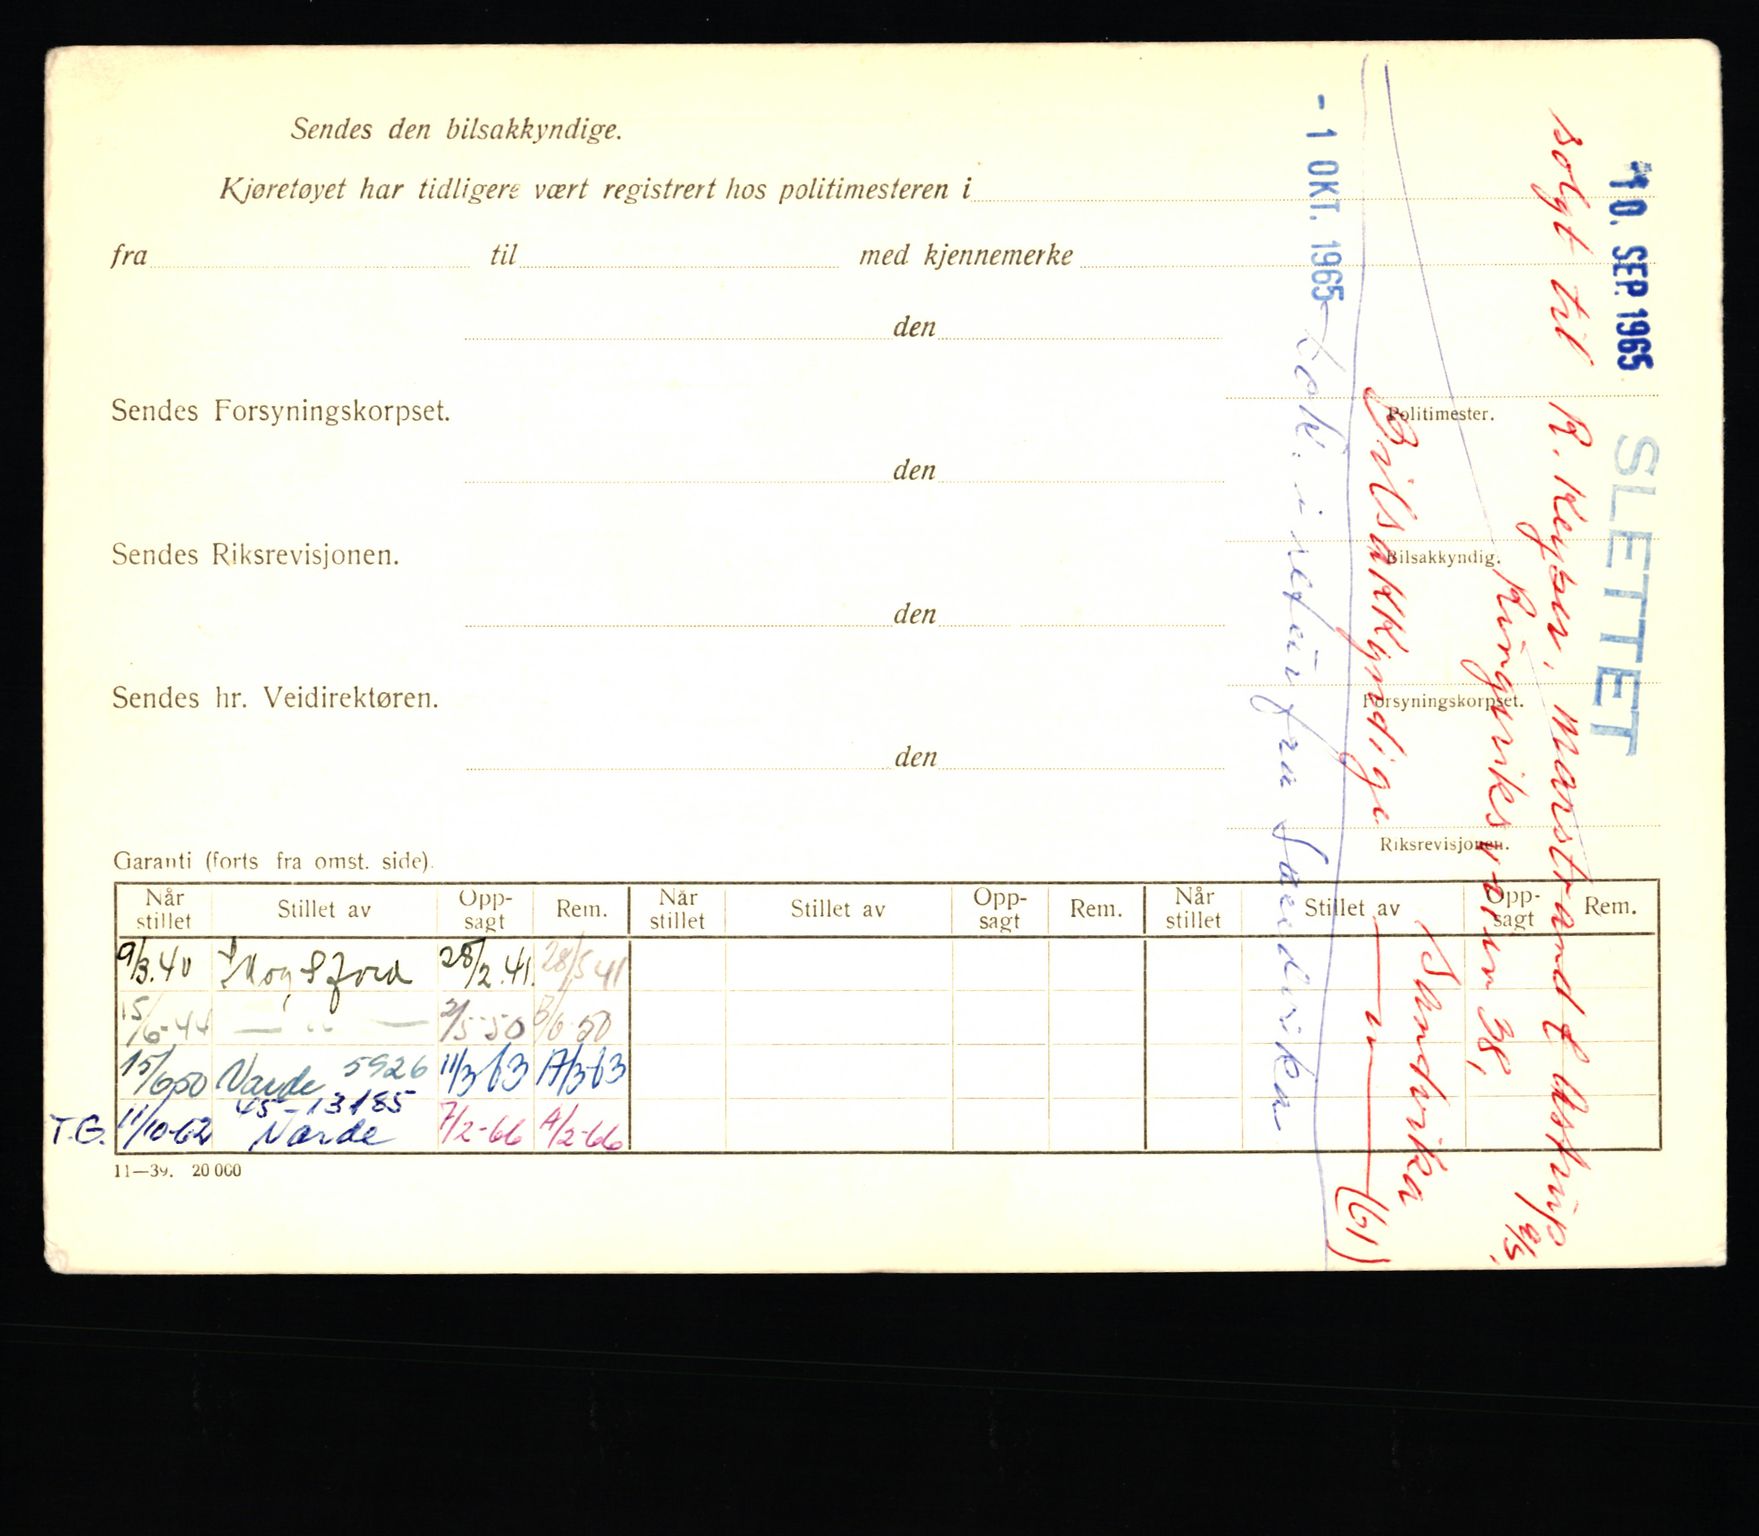 Sendes den bilsakkyndige.
Kjøretøyet har tidligere vært registrert hos politimesteren i
fra til med kjennemerke
den
Politimester.
Sendes Forsyningskorpset.
den
Bilsakkyndig.
Sendes Riksrevisjonen.
den
Forsyningskorpset.
Sendes hr. Veidirektøren.
den
Riksrevisjonen.
Garanti (forts fra omst. side).
Når stillet Stillet av Opp-sagt Rem. Når stillet Stillet av Opp-sagt Rem. Når stillet Stillet av Opp-sagt Rem.
9/3.40 Skogsfjord 28/2.41. 28/5 41
15/6-44 — " — 2/5-50 /6-50
15/6 50 Varde 5926 11/3 63 17/3-63
45-13185
T.G. 11/10-62 Varde 7/2-66 4/2-66
11—39. 20 000
10. SEP. 1965 SLETTET
solgt til R. Keyser, Marstrand & Astrup
a/s.
Ringeriksveien 38,
Sandvika
Bilsakkyndige — " — (61)
- 1 OKT. 1965 fra Sandvika